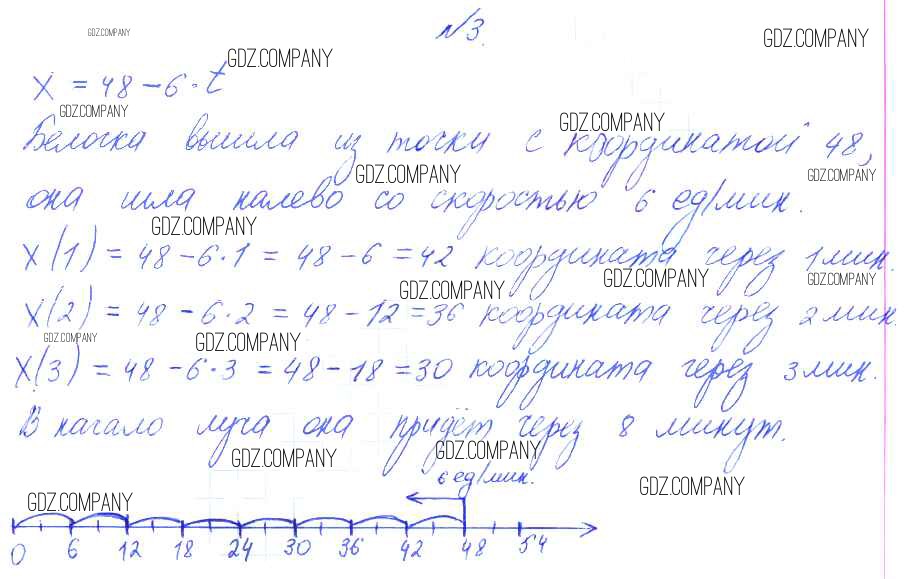 GDZ.COMPANY
№3.
GDZ.COMPANY
GDZ.COMPANY
x = 48 - 6 · t
GDZ.COMPANY
GDZ.COMPANY
Белочка вышла из точки с координатой 48,
GDZ.COMPANY
GDZ.COMPANY
она шла налево со скоростью 6 ед/мин.
GDZ.COMPANY
x(1) = 48 - 6 · 1 = 48 - 6 = 42 координата через 1 мин.
GDZ.COMPANY
GDZ.COMPANY
GDZ.COMPANY
x(2) = 48 - 6 · 2 = 48 - 12 = 36 координата через 2 мин.
GDZ.COMPANY
GDZ.COMPANY
x(3) = 48 - 6 · 3 = 48 - 18 = 30 координата через 3 мин.
В начало луча она придёт через 8 минут.
GDZ.COMPANY
GDZ.COMPANY
6 ед/мин.
GDZ.COMPANY
GDZ.COMPANY
0 6 12 18 24 30 36 42 48 54